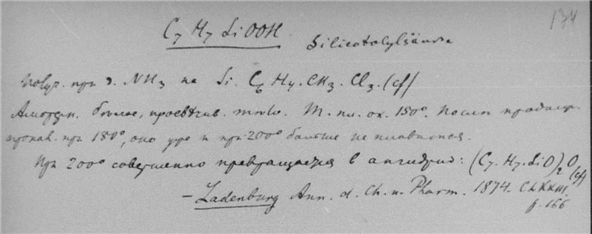 C₇ H₇ SiOOH
134
Silicotolylsäure
Получ. при д. NH₃ на Si. C₆ H₄. CH₃. Cl₃. (cf)
Аморфн. белое, просвечив. тело. Т. пл. ок. 150°. После продолж.
при 180°, оно уже и при 200° больше не плавится.
При 200° совершенно превращается в ангидрид: (C₇. H₇. SiO)₂O (cf)
— Ladenburg Ann. d. Ch. u. Pharm. 1874. CLXXIII.
p. 166